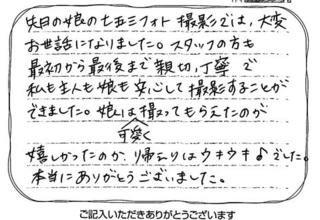 先日の娘の七五三フォト撮影では、大変
お世話になりました。スタッフの方も
最初から最後まで親切、丁寧で
私も主人も娘も安心して撮影することが
できました。娘は撮ってもらえたのが
可愛く
嬉しかったのか、帰りはウキウキ♪でした。
本当にありがとうございました。
ご記入いただきありがとうございます